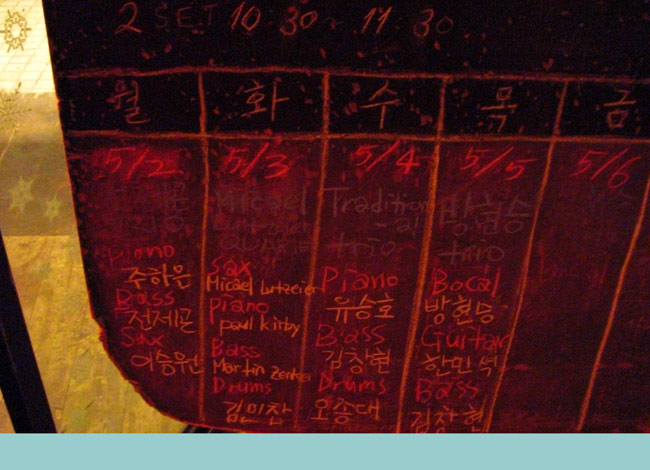 2 SET 10:30~ 11:30
월 화 수 목 금
5/2 5/3 5/4 5/5 5/6
Micael Tradition 방현승
-al
QUARTET trio trio
Piano
주하은
Bass
전제곤
Sax
이승원
Sax
Micael Lutzeier
Piano
paul Kirby
Bass
Martin Zenker
Drums
김민찬
Piano
유승호
Bass
김창현
Drums
오종대
Bocal
방현승
Guitar
한민석
Bass
김창현